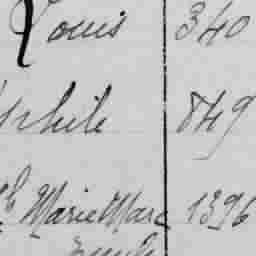 Louis 340
phile 849
Marie Marc 1396